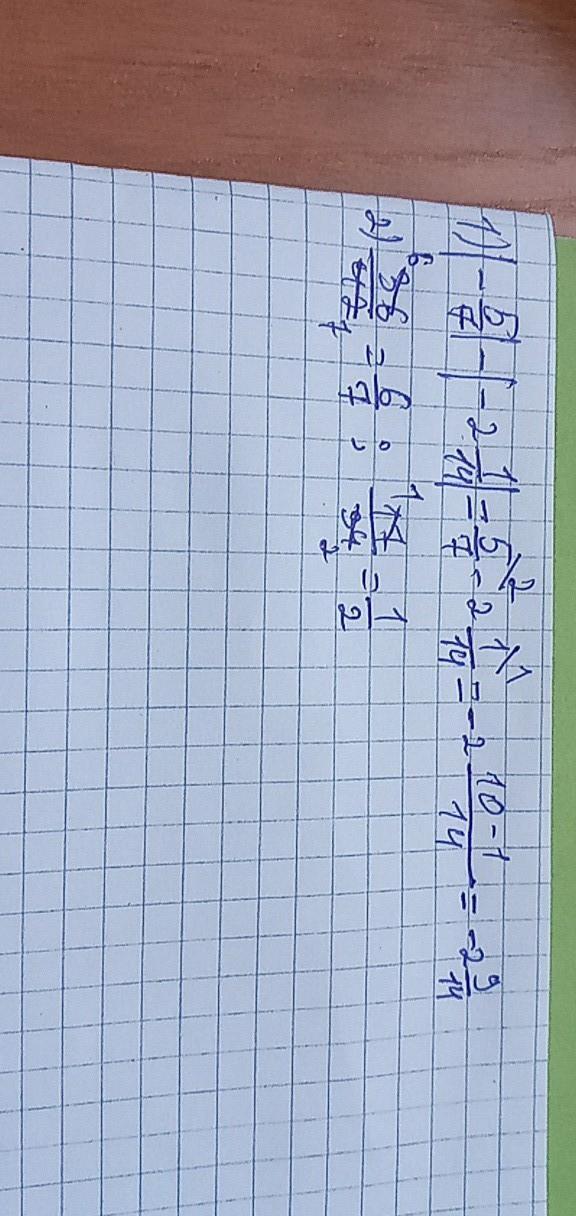 1) |-5/7| - |-2 1/14| = 5/7 \2 - 2 1/14 \1 = -2 10-1/14 = -2 9/14
2) 36/42 6 7 = 6/7 ; 17/34 1 2 = 1/2